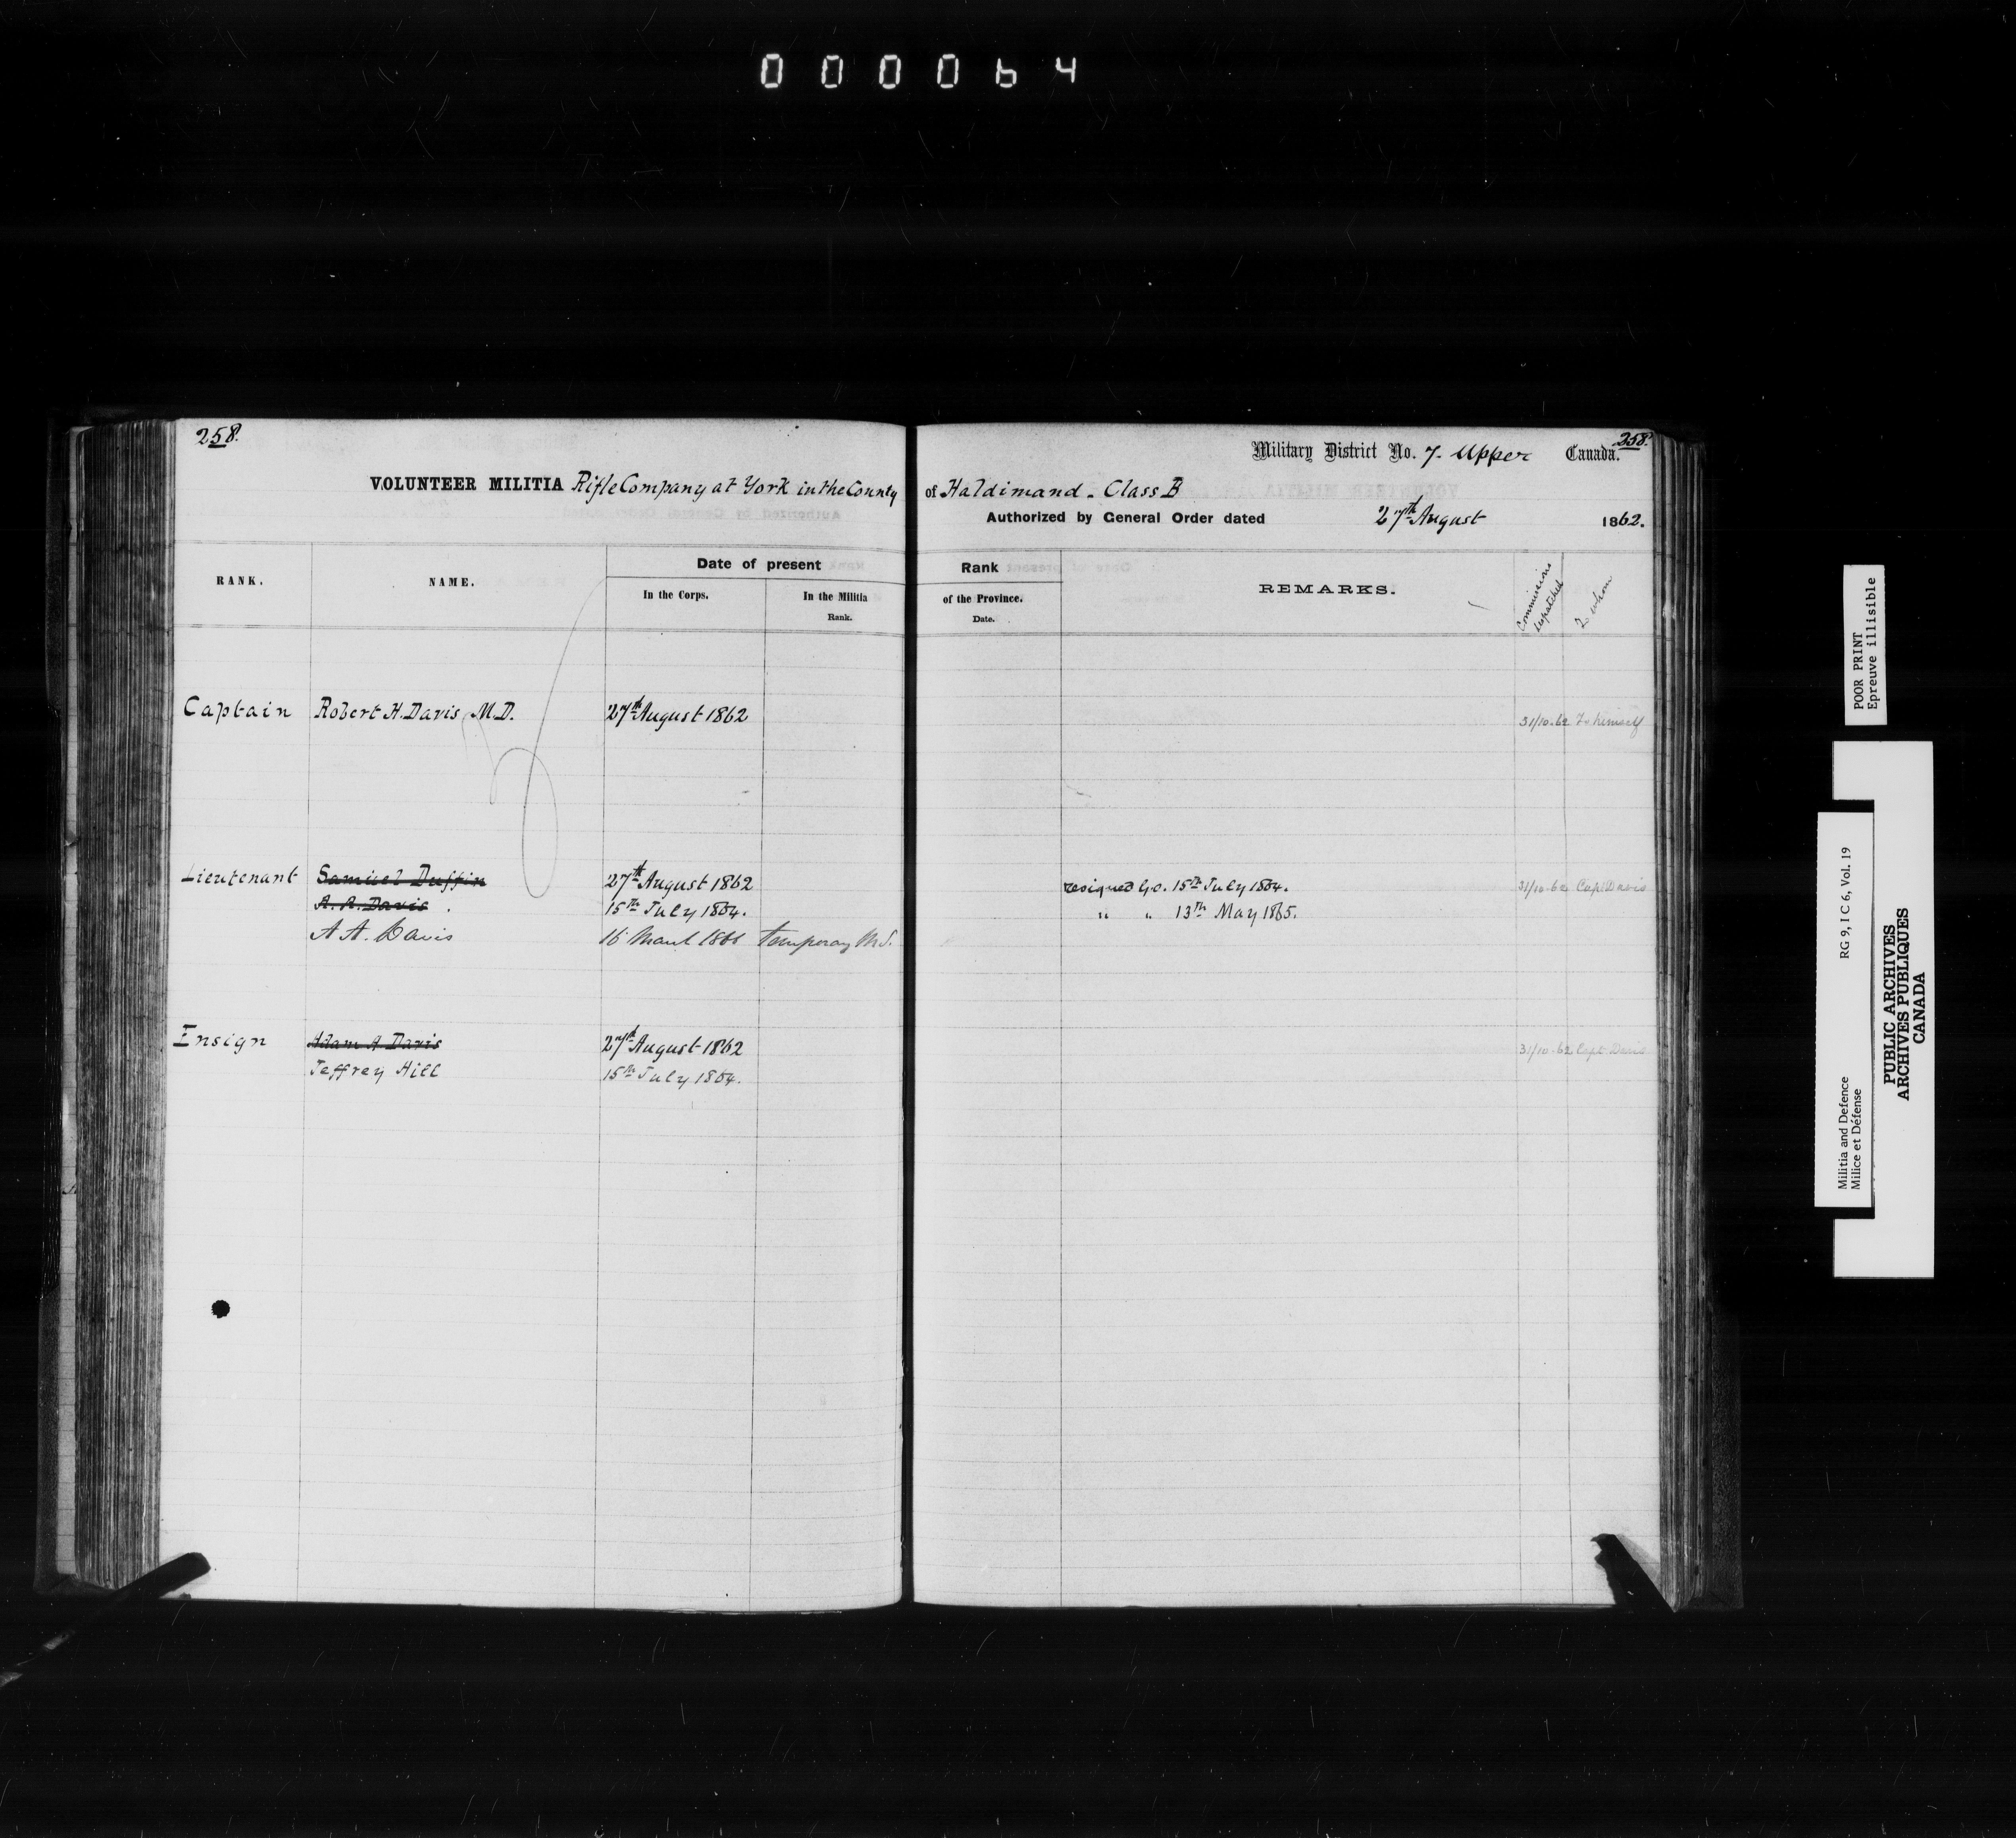 000064
258.
258.
Military District No. 7. Upper Canada.
VOLUNTEER MILITIA Rifle Company at York in the County of Haldimand - Class B
Authorized by General Order dated 27th August 1862.
RANK. NAME. Date of present Rank REMARKS. Commissions despatched To whom
In the Corps. In the Militia of the Province.
Rank. Date.
Captain Robert H. Davis, M.D. 27th August 1862 31/10-62 To himself
Lieutenant Samuel Duffin 27th August 1862 resigned G.O. 15th July 1864. 31/10-62 Capt Davis
A. A. Davis . 15th July 1864. " " 13th May 1865.
A A. Davis 16 March 1866 temporary
Ensign Adam A. Davis 27th August 1862 31/10-62 Capt Davis
Jeffrey Hill 15th July 1864.
POOR PRINT
Epreuve illisible
Militia and Defence RG 9, I C 6, Vol. 19
Milice et Défense
PUBLIC ARCHIVES
ARCHIVES PUBLIQUES
CANADA